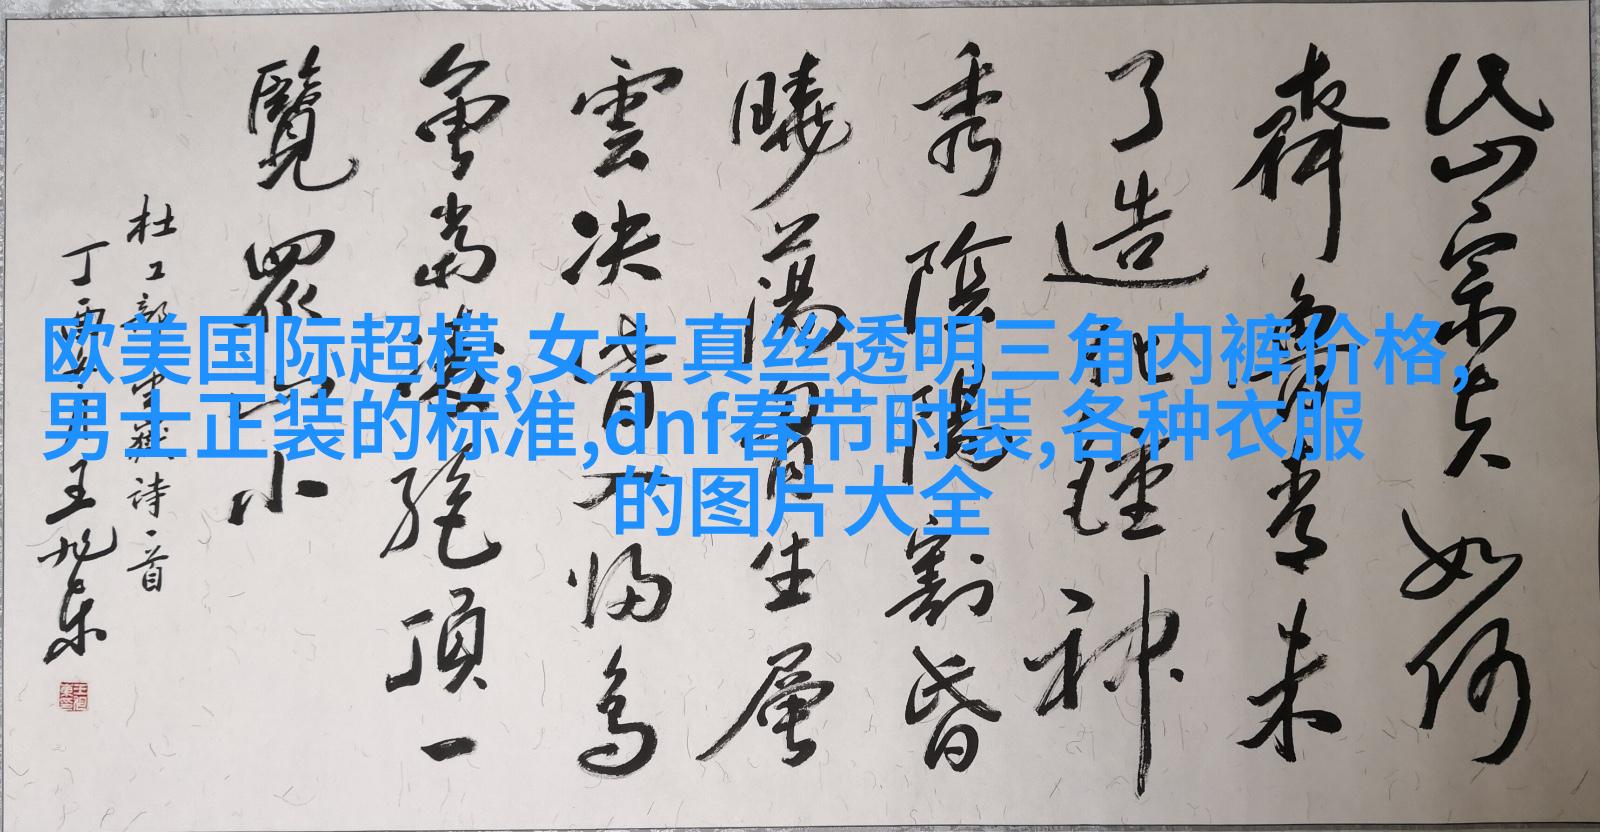 岱宗夫如何
齊魯青未
了造化鍾神
秀陰陽割昏
曉蕩胸生層
雲决眥入歸鳥
會當凌絕頂一
覽眾山小
杜工部望嶽詩一首
丁酉 王旭东
欧美国际超模,女士真丝透明三角内裤价格,
男士正装的标准,dnf春节时装,各种衣服
的图片大全